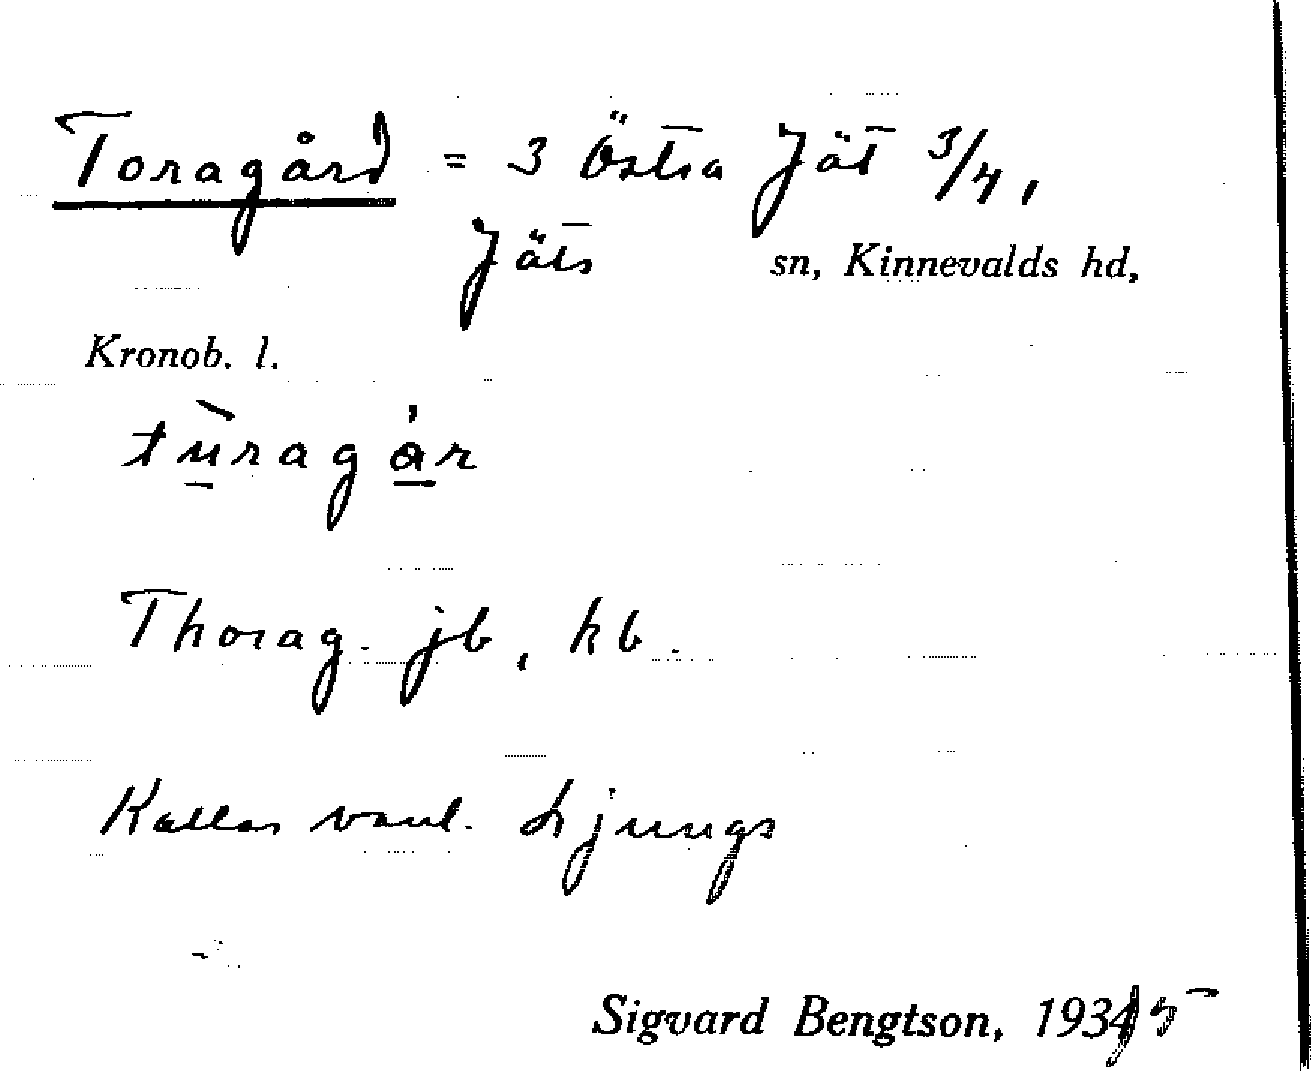 Toragård = 3 Östra Jät 3/4,
Jäts sn, Kinnevalds hd,
Kronob. l.
tùragár
Thorag. jb, kb.
Kallas vanl. Ljungs
Sigvard Bengtson, 1935